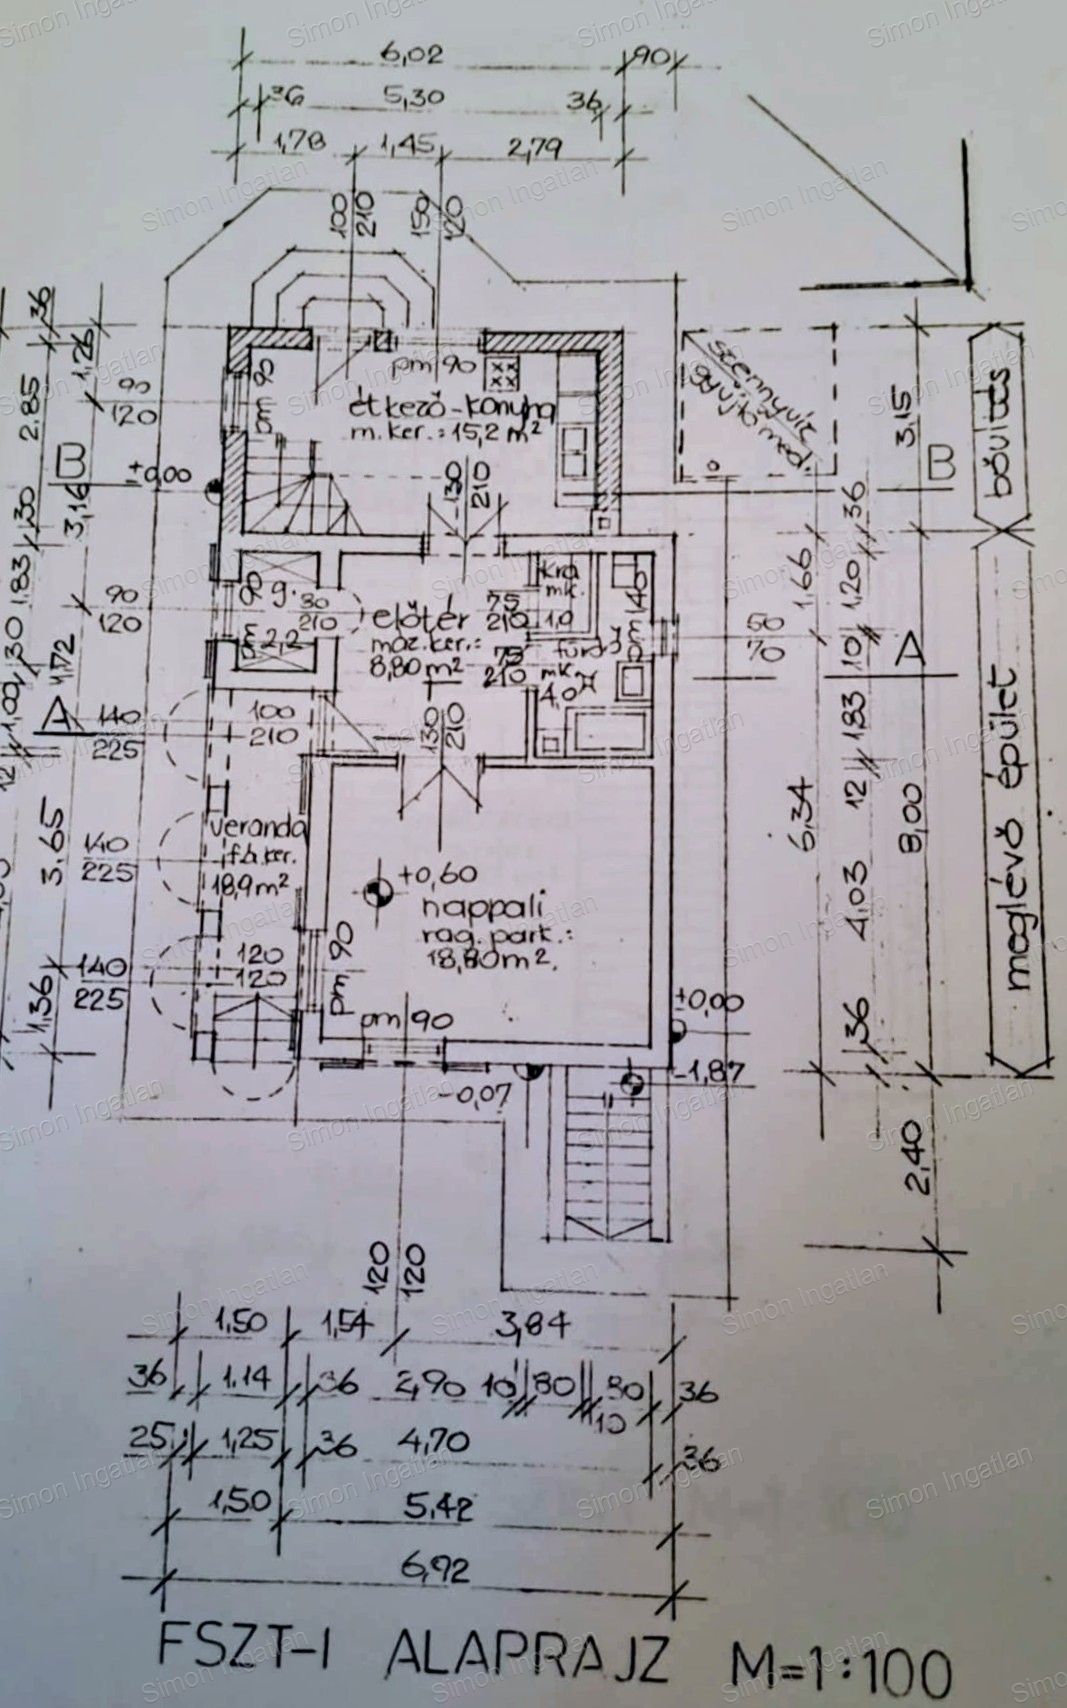 6,02
90
36
5,30
36
1,78
1,45
2,79
100
210
150
120
36
1,26
2.85
90
120
pm 90
pm 90
étkező-konyha
m. ker.: 15,2 m²
szennyvíz
gyűjtő med.
3,15
bővítés
B
±0,00
B
3,16
130
210
36
1,30
1.83
90
120
g.
80
210
2,2
előtér
moz. ker.:
8,80 m²
75
210
75
210
mk.
1,0
fürdő
mk.
4,0
pm 140
60
70
1,66
1,20
10
A
30
1,00
1,72
A
140
225
100
210
130
210
1,83
12
12
6,34
8,00
meglévő épület
3.65
140
225
veranda
f.b. ker.
18,9 m²
+0,60
nappali
rag. park.:
18,80 m².
4,03
120
120
pm 90
pm 90
140
225
1,36
±0,00
36
-1,87
-0,07
2,40
120
120
1,50
1,54
3,84
36
1.14
36
2,90
10
80
80
10
36
25
1,25
36
4,70
36
1,50
5,42
6,92
FSZT-I ALAPRAJZ M=1:100
Simon Ingatlan